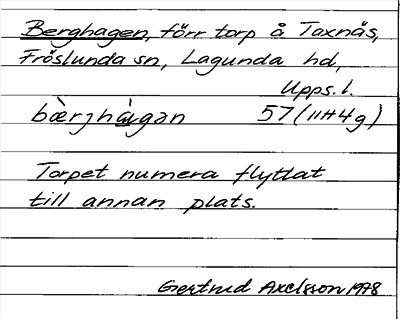 Berghagen, förr torp å Taxnäs,
Fröslunda sn, Lagunda hd,
Upps. l.
bæ̀rjhàgən 57 (11H4g)
Torpet numera flyttat
till annan plats.
Gertrud Axelsson 1978